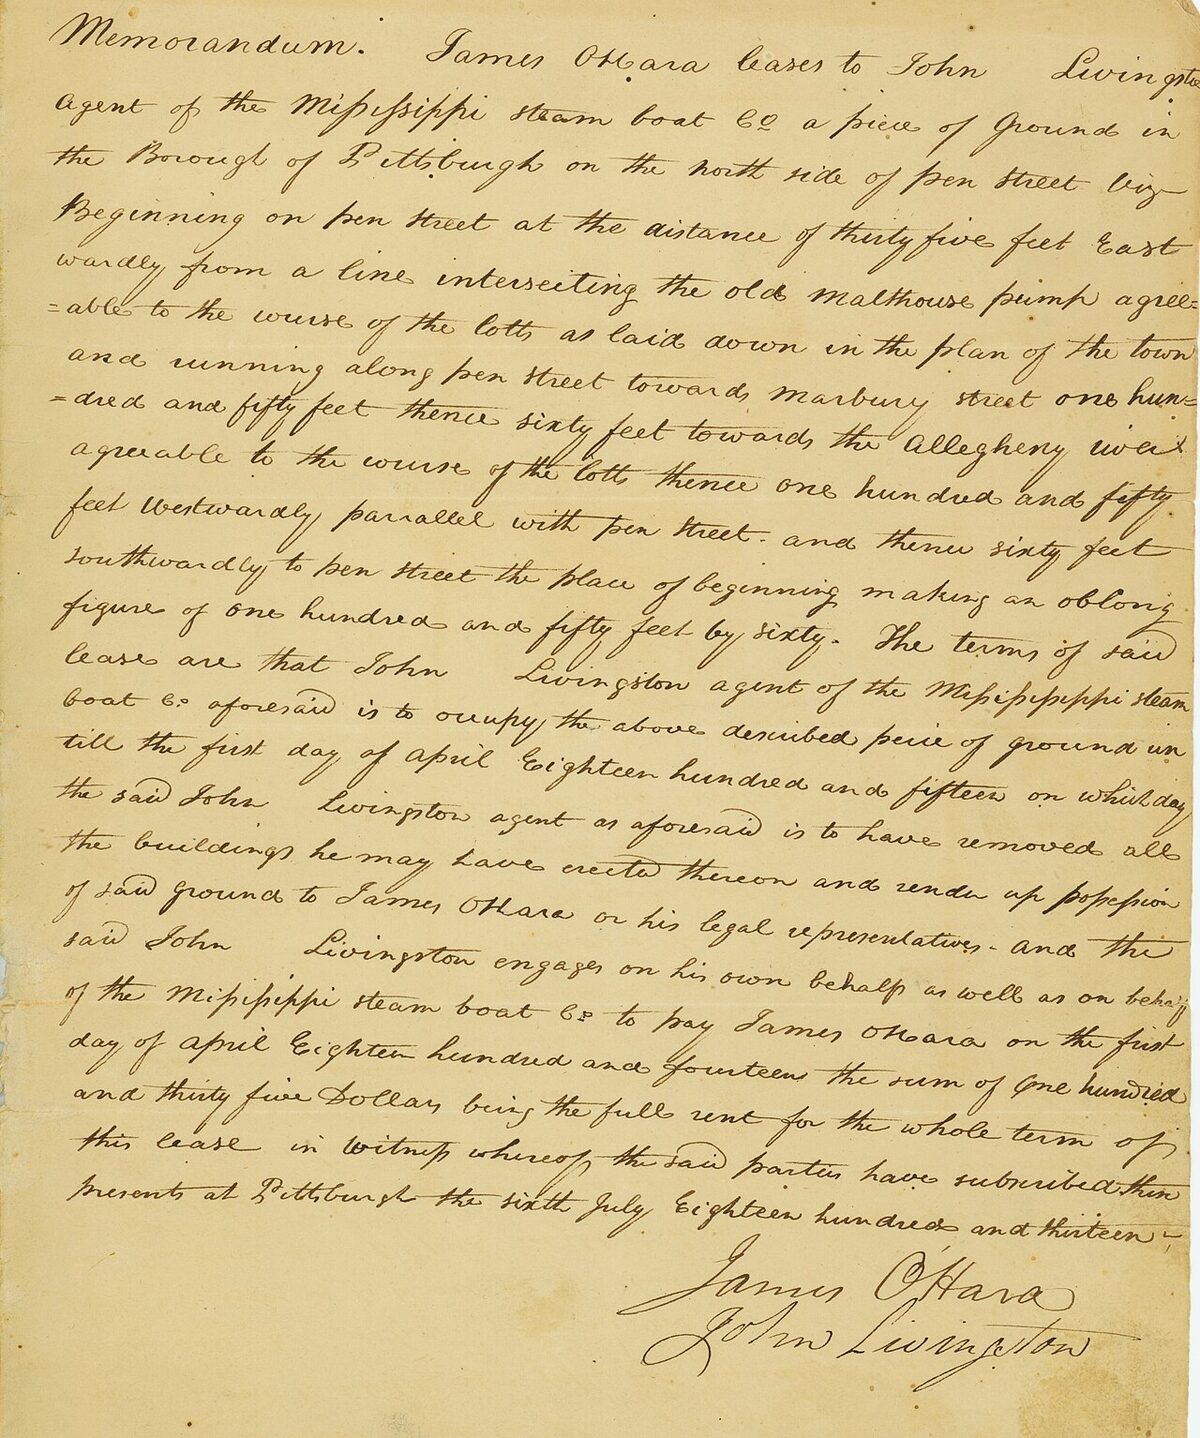 Memorandum. James OHara leases to John Livingston
Agent of the Mississippi steam boat Co. a piece of Ground in
the Borough of Pittsburgh on the north side of pen street Viz
Beginning on pen street at the distance of thirty five feet East
wardly from a line intersecting the old malthouse pump agree=
=able to the course of the lotts as laid down in the plan of the town
and running along pen street towards marbury street one hun=
=dred and fifty feet thence sixty feet towards the Allegheny river
agreeable to the course of the lotts thence one hundred and fifty
feet Westwardly parrallel with pen street. and thence sixty feet
southwardly to pen street the place of beginning making an oblong
figure of one hundred and fifty feet by sixty. The terms of said
lease are that John Livingston agent of the Missisippi steam
boat Co. aforesaid is to occupy the above described peice of ground un
till the first day of April Eighteen hundred and fifteen on which day
the said John Livingston agent as aforesaid is to have removed all
the buildings he may have erected thereon and render up possession
of said ground to James OHara or his legal representatives. and the
said John Livingston engages on his own behalf as well as on behalf
of the Missisippi steam boat Co. to pay James OHara on the first
day of April Eighteen hundred and fourteen the sum of One hundred
and thirty five Dollars being the full rent for the whole term of
this lease in Witness whereof the said parties have subscribed these
presents at Pittsburgh the sixth July Eighteen hundred and thirteen
James O'Hara
John Livingston